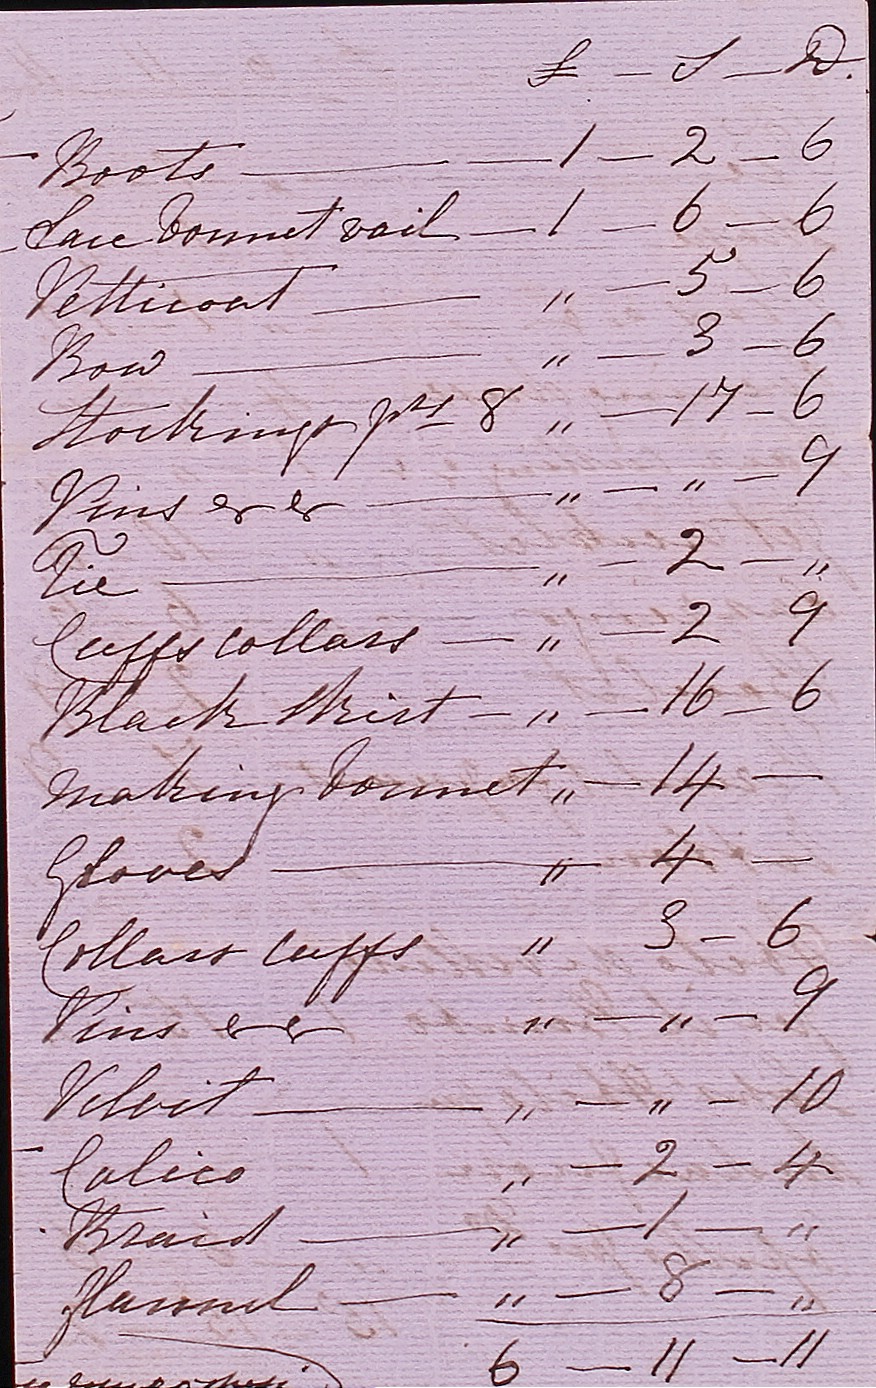 £ — S — D.
Boots — 1 — 2 — 6
Lace bonnet vail — 1 — 6 — 6
Petticoat — " — 5 — 6
Bow — " — 3 — 6
Stockings prs 8 " — 17 — 6
Pins &c &c — " — " — 9
Tie — " — 2 — "
Cuffs collars — " — 2 9
Black Skirt — " — 16 — 6
making bonnet " — 14 —
Gloves — " 4 —
Collars cuffs " 3 — 6
Pins &c &c " — " — 9
Velvit — " — " — 10
Calico " — 2 — 4
Braid — " — 1 — "
flannel — " — 8 — "
6 — 11 — 11